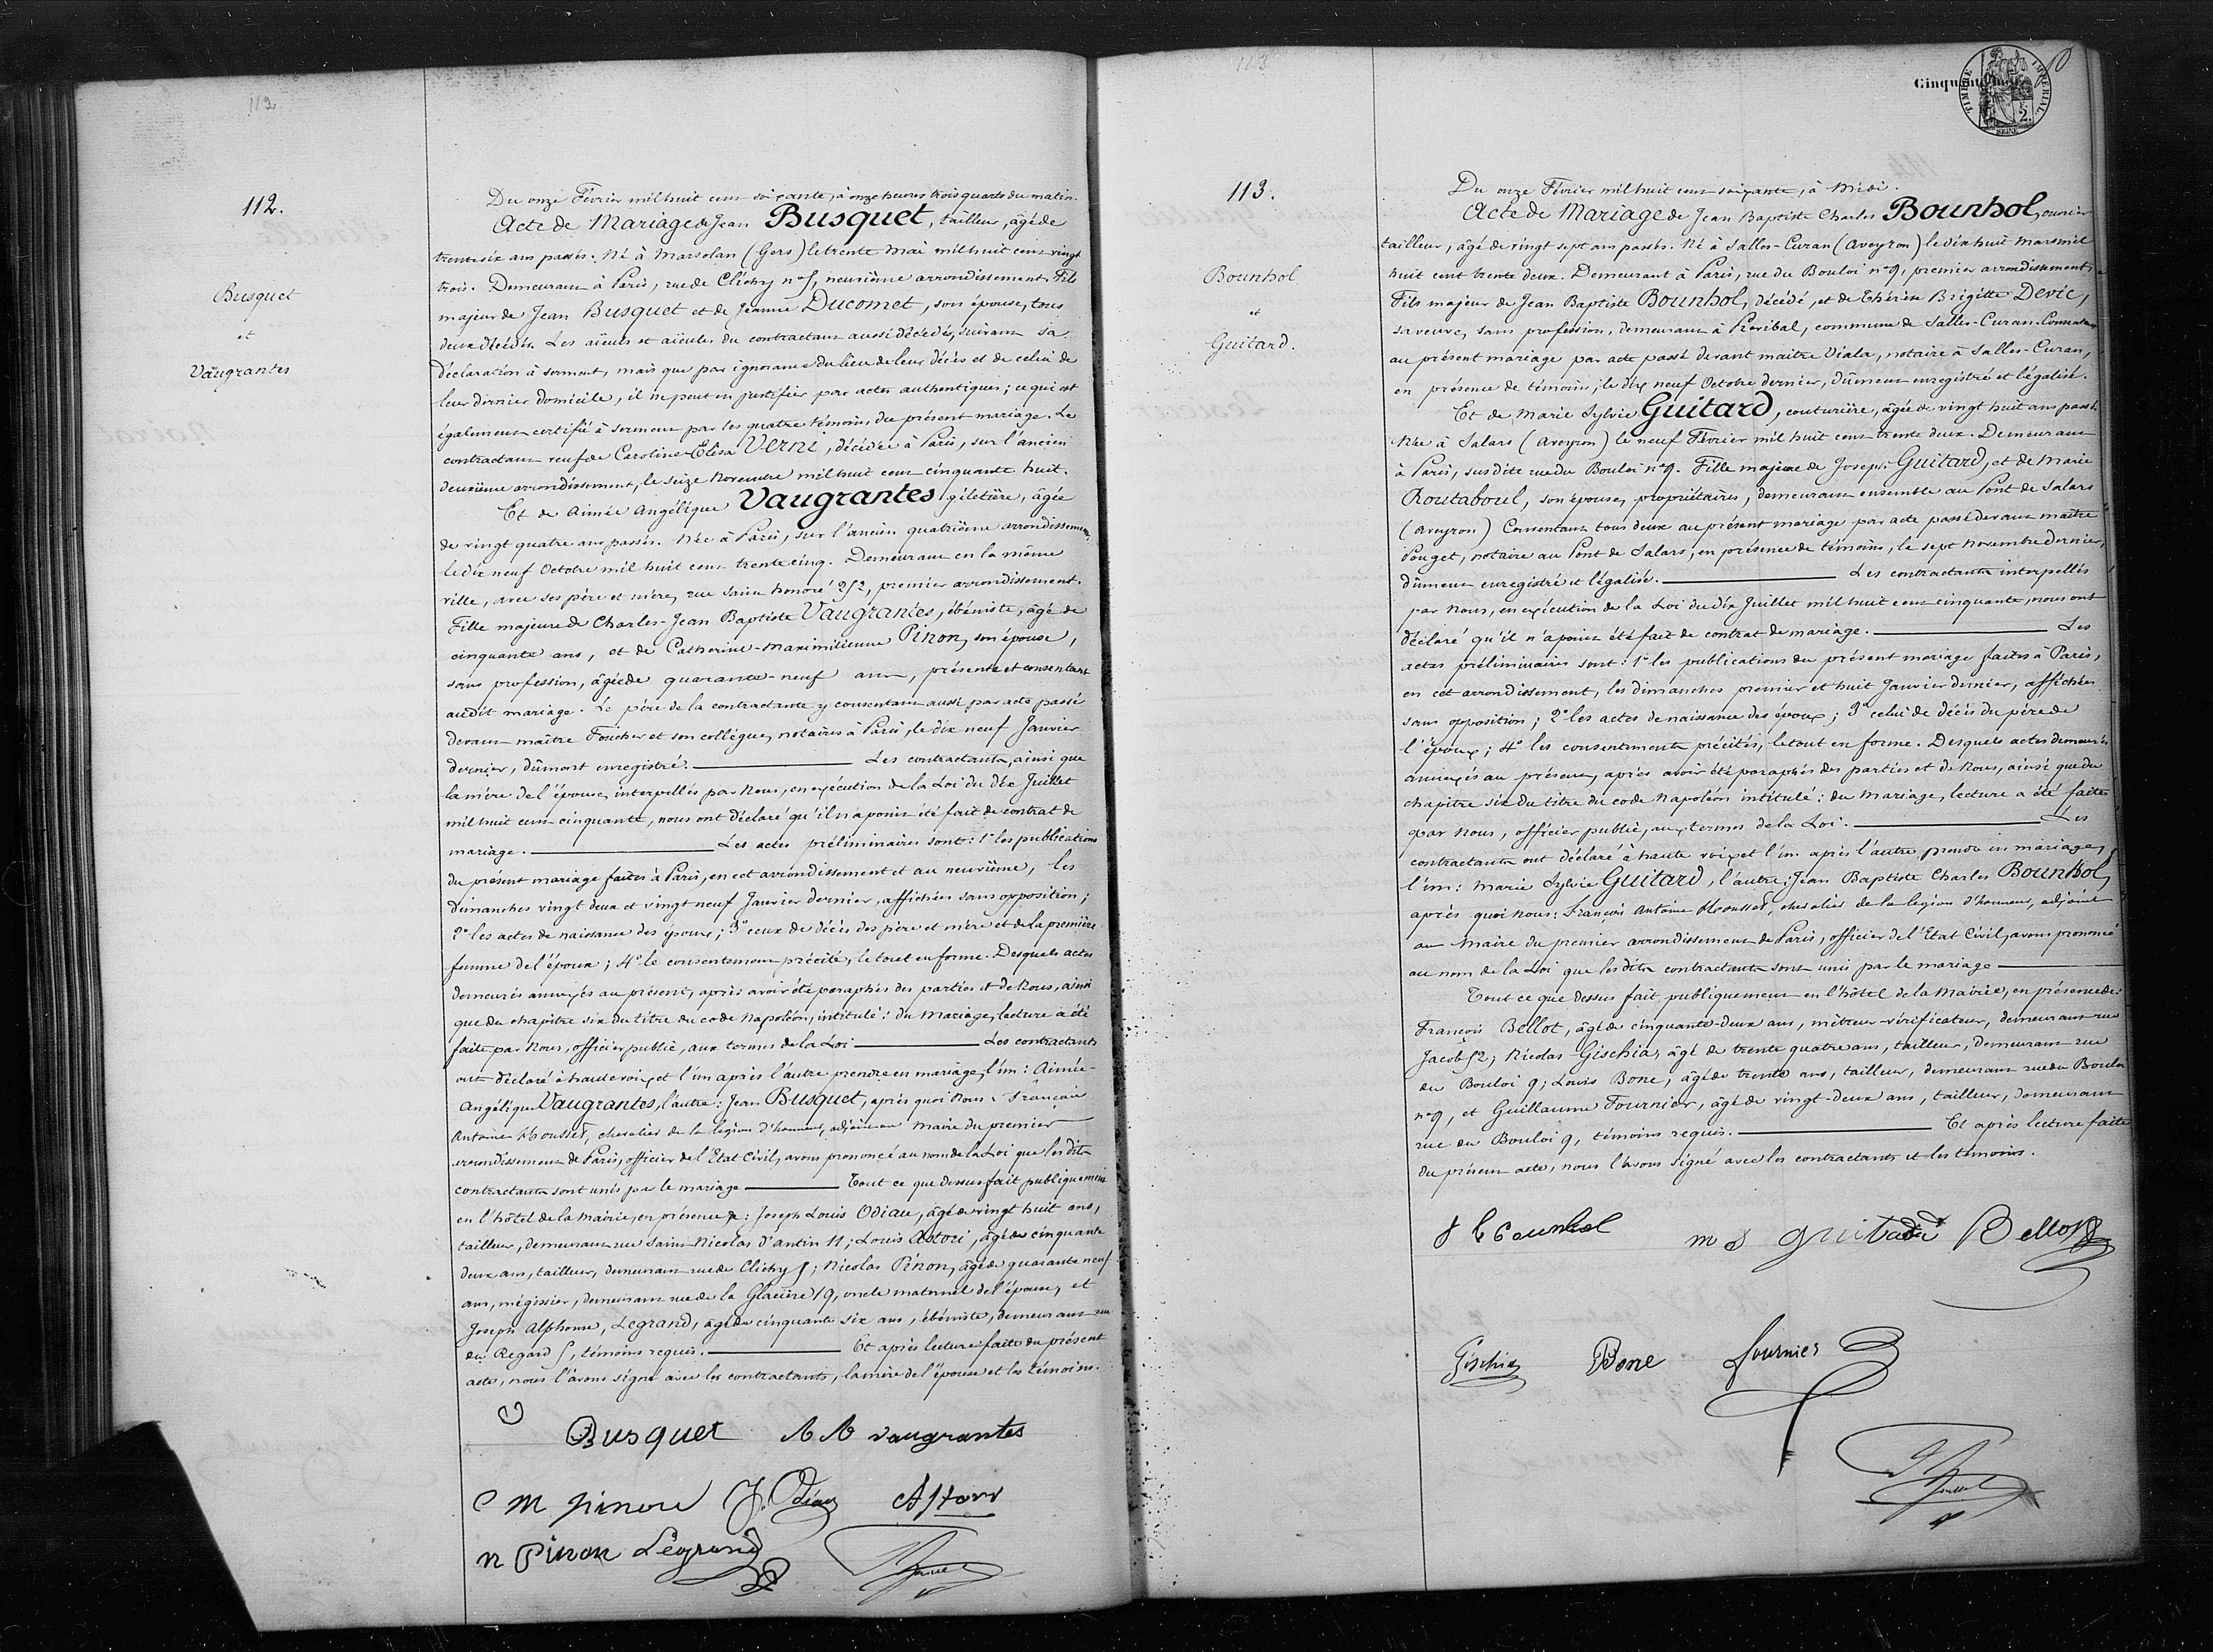 112
112.
Busquet
et
Vaugrantes
Du onze Février mil huit cent soixante, à onze heures trois quarts du matin.
Acte de Mariage de Jean Busquet, tailleur, âgé de
trente six ans passés. Né à Marsolan (Gers) le trente Mai mil huit cent vingt
trois. Demeurant à Paris, rue de Clichy n° 5, neuvième arrondissement. Fils
majeur de Jean Busquet et de Jeanne Ducomet, son épouse, tous
deux décédés. Les aïeuls et aïeules du contractant aussi décédés, suivant sa
déclaration à serment, mais que par ignorance du lieu de leur décès et de celui de
leur dernier domicile, il ne peut en justifier par actes authentiques; ce qui est
également certifié à serment par les quatre témoins du présent mariage. Le
contractant veuf de Caroline-Elisa Verni, décédée à Paris, sur l'ancien
deuxième arrondissement, le seize Novembre mil huit cent cinquante huit.
Et de Aimée Angélique Vaugrantes, giletière, âgée
de vingt quatre ans passés. Née à Paris, sur l'ancien quatrième arrondissement,
le dix neuf Octobre mil huit cent trente cinq. Demeurant en la même
ville, avec ses père et mère, rue Saint honoré 252, premier arrondissement.
Fille majeure de Charles-Jean Baptiste Vaugrantes, ébéniste, âgé de
cinquante ans, et de Catherine-Maximilienne Pinon, son épouse,
sans profession, âgée de quarante-neuf ans, présente et consentant
audit mariage. Le père de la contractante y consentant aussi par acte passé
devant maître Foucher et son collègue, notaires à Paris, le dix neuf Janvier
dernier, dûment enregistré. Les contractants, ainsi que
la mère de l'épouse, interpellés par Nous, en exécution de la Loi du dix Juillet
mil huit cent cinquante, nous ont déclaré qu'il n'a point été fait de contrat de
mariage. Les actes préliminaires sont: 1° les publications
du présent mariage faites à Paris, en cet arrondissement et au neuvième, les
dimanches vingt deux et vingt neuf Janvier dernier, affichées sans opposition;
2° les actes de naissance des époux; 3° ceux de décès des père et mère et de la première
femme de l'époux; 4° le consentement précité, le tout en forme. Desquels actes
demeurés annexés au présent, après avoir été paraphés des parties et de Nous, ainsi
que du chapitre six du titre du code Napoléon, intitulé: du Mariage, lecture a été
faite par Nous, officier public, aux termes de la Loi. Les contractants
ont déclaré à haute voix, et l'un après l'autre prendre en mariage, l'un: Aimée-
Angélique Vaugrantes, l'autre: Jean Busquet, après quoi Nous: François
Antoine Mousset, chevalier de la légion d'honneur, adjoint au Maire du premier
arrondissement de Paris, officier de l'Etat Civil, avons prononcé au nom de la Loi que les dits
contractants sont unis par le mariage Tout ce que dessus fait publiquement
en l'hôtel de la Mairie, en présence de: Joseph Louis Odiau, âgé de vingt huit ans,
tailleur, demeurant rue Saint Nicolas d'antin 11; Louis Astori, âgé de cinquante
deux ans, tailleur, demeurant rue de Clichy 5; Nicolas Pinon, âgé de quarante neuf
ans, mégissier, demeurant rue de la Glacière 19, oncle maternel de l'épouse, et
Joseph Alphonse, Legrand, âgé de cinquante six ans, ébéniste, demeurant rue
du Regard 5, témoins requis. Et après lecture faite du présent
acte, nous l'avons signé avec les contractants, la mère de l'épouse et les témoins.
Busquet A A vaugrantes
C M pinon J. Odiau Astori
n Pinon Legrand
113
Cinquante
TIMBRE IMPERIAL
2.
SEINE
113.
Bounhol
et
Guitard.
Du onze Février mil huit cent soixante, à Midi.
Acte de Mariage de Jean Baptiste Charles Bounhol, ouvrier
tailleur, âgé de vingt sept ans passés. Né à Salles-Curan (Aveyron) le dix huit Mars mil
huit cent trente deux. Demeurant à Paris, rue du Bouloi n° 9, premier arrondissement.
Fils majeur de Jean Baptiste Bounhol, décédé, et de Thérèse Brigitte Devic,
sa veuve, sans profession, demeurant à , commune de Salles-Curan. Consentant
au présent mariage par acte passé devant maître Viala, notaire à Salles-Curan,
en présence de témoins, le dix neuf Octobre dernier, dûment enregistré et légalisé.
Et de Marie Sylvie Guitard, couturière, âgée de vingt huit ans passés.
Née à Salars (Aveyron) le neuf Février mil huit cent trente deux. Demeurant
à Paris, susdite rue du Bouloi n° 9. Fille majeure de Joseph Guitard, et de Marie
Routaboul, son épouse, propriétaires, demeurant ensemble au Pont de Salars
(Aveyron) Consentant tous deux au présent mariage par acte passé devant maître
Pouget, notaire au Pont de Salars, en présence de témoins, le sept Novembre dernier,
dûment enregistré et légalisé. Les contractants interpellés
par Nous, en exécution de la Loi du dix Juillet mil huit cent cinquante, nous ont
déclaré qu'il n'a point été fait de contrat de mariage. Les
actes préliminaires sont: 1° les publications du présent mariage faites à Paris,
en cet arrondissement, les dimanches premier et huit Janvier dernier, affichées
sans opposition; 2° les actes de naissance des époux; 3° celui de décès du père de
l'époux; 4° les consentements précités, le tout en forme. Desquels actes demeurés
annexés au présent, après avoir été paraphés des parties et de Nous, ainsi que du
chapitre six du titre du code Napoléon intitulé: du Mariage, lecture a été faite
par Nous, officier public, aux termes de la Loi. Les
contractants ont déclaré à haute voix, et l'un après l'autre prendre en mariage,
l'un: Marie Sylvie Guitard, l'autre: Jean Baptiste Charles Bounhol,
après quoi Nous: François Antoine Mousset, chevalier de la légion d'honneur, adjoint
au Maire du premier arrondissement de Paris, officier de l'Etat Civil, avons prononcé
au nom de la Loi que les dits contractants sont unis par le mariage
Tout ce que dessus fait publiquement en l'hôtel de la Mairie, en présence de:
François Bellot, âgé de cinquante-deux ans, métreur-vérificateur, demeurant rue
Jacob 52; Nicolas Gischia, âgé de trente quatre ans, tailleur, demeurant rue
du Bouloi 9; Louis Bone, âgé de trente ans, tailleur, demeurant rue du Bouloi
n° 9, et Guillaume Fournier, âgé de vingt-deux ans, tailleur, demeurant
rue du Bouloi 9, témoins requis. Et après lecture faite
du présent acte, nous l'avons signé avec les contractants et les témoins.
Bounhol m S guitard Bellot
Gischia Bone fournier